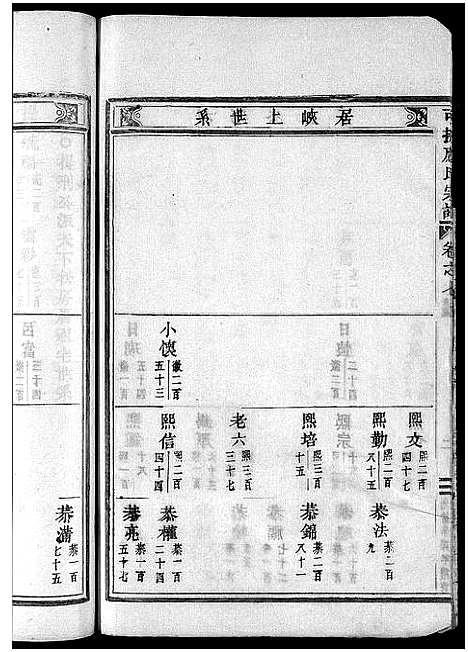 居峽上世系
氏宗譜
卷之七
熙文
熙二百
四十七
熙勤
熙二百
八十五
恭法
恭二百
九
熙培
熙三百
十五
恭錦
恭二百
八十一
老六
熙三百
三十七
小懊
徽二百
五十三
熙信
熙二百
四十四
恭權
恭一百
二十四
恭亮
恭一百
五十七
恭滿
恭一百
七十五